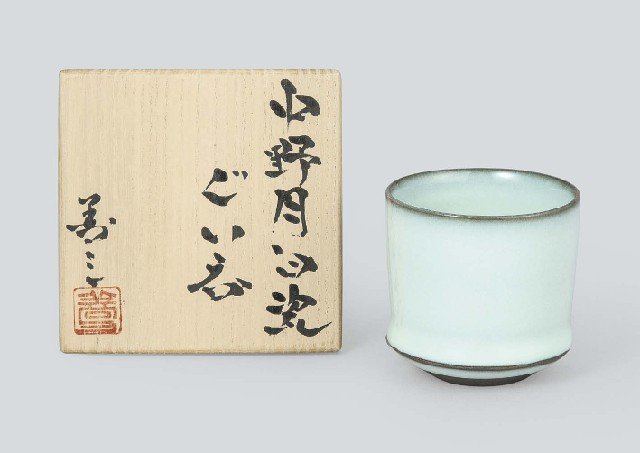 小野月白瓷
ぐい呑